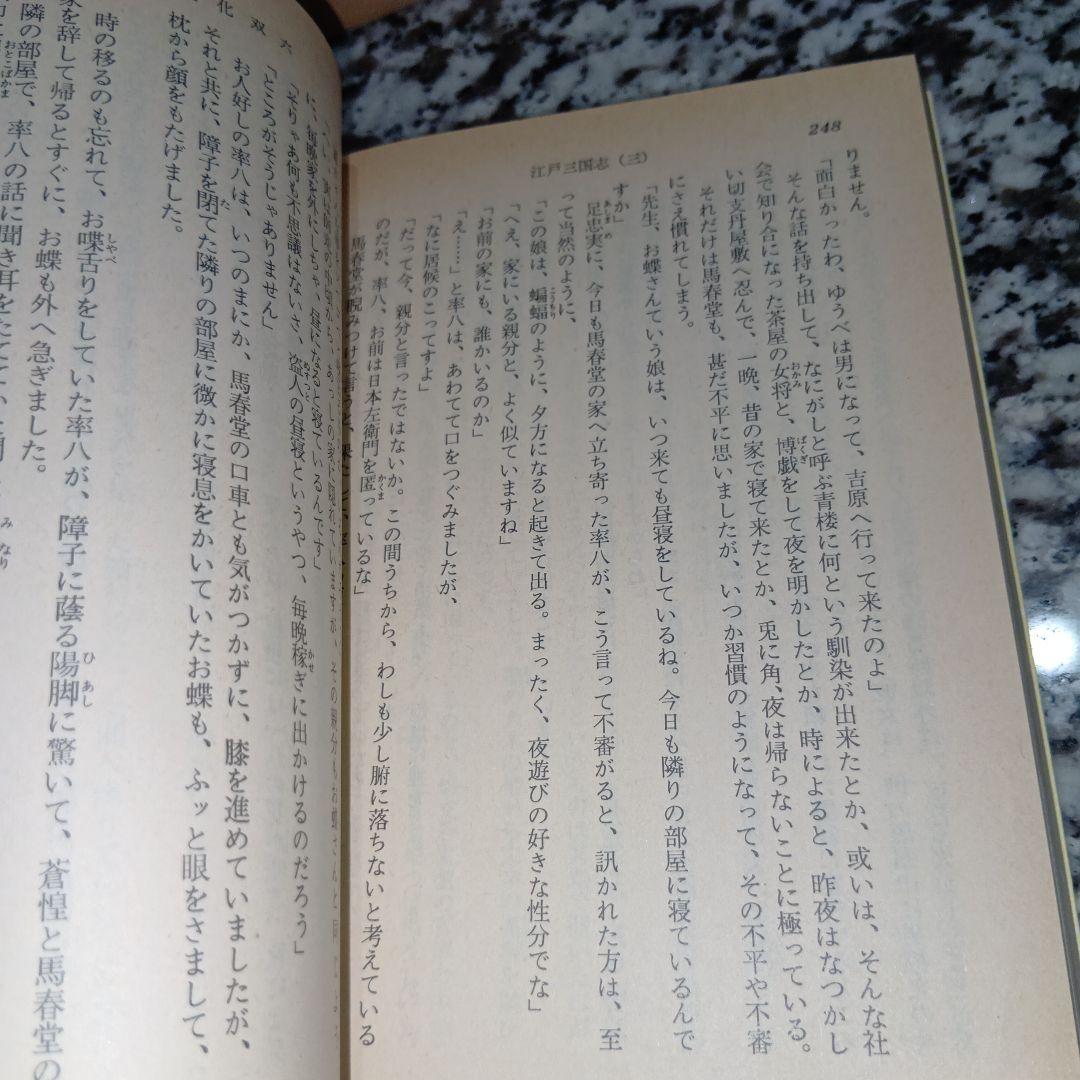 248
江戸三国志（三）
りません。
「面白かったわ、ゆうべは男になって、吉原へ行って来たのよ」
そんな話を持ち出して、なにがしと呼ぶ青楼に何という馴染が出来たとか、或いは、そんな社
会で知り合になった茶屋の女将と、博戯をして夜を明かしたとか、時によると、昨夜はなつかし
い切支丹屋敷へ忍んで、一晩、昔の家で寝て来たとか、兎に角、夜は帰らないことに極っている。
それだけは馬春堂も、甚だ不平に思いましたが、いつか習慣のようになって、その不平や不審
にさえ慣れてしまう。
「先生、お蝶さんていう娘は、いつ来ても昼寝をしているね。今日も隣りの部屋に寝ているんで
すか」
足忠実に、今日も馬春堂の家へ立ち寄った率八が、こう言って不審がると、訊かれた方は、至
って当然のように、
「この娘は、蝙蝠のように、夕方になると起きて出る。まったく、夜遊びの好きな性分でな」
「へえ、家にいる親分と、よく似ていますね」
「お前の家にも、誰かいるのか」
「え……」と率八は、あわてて口をつぐみましたが、
「なに居候のこってすよ」
「だって今、親分と言ったではないか。この間うちから、わしも少し腑に落ちないと考えている
のだが、率八、お前は日本左衛門を匿っているな」
馬春堂が睨みつけて言うと、
化双六
に、毎晩家を外にしちゃ、昼になると寝ているんです」
「そりゃあ何も不思議はないさ、盗人の昼寝というやつ、毎晩稼ぎに出かけるのだろう」
「ところがそうじゃありません」
お人好しの率八は、いつのまにか、馬春堂の口車とも気がつかずに、膝を進めていましたが、
それと共に、障子を閉てた隣りの部屋に微かに寝息をかいていたお蝶も、ふッと眼をさまして、
枕から顔をもたげました。
時の移るのも忘れて、お喋舌りをしていた率八が、障子に蔭る陽脚に驚いて、蒼惶と馬春堂の
家を辞して帰るとすぐに、お蝶も外へ急ぎました。
隣の部屋で、率八の話に聞き耳をたてて